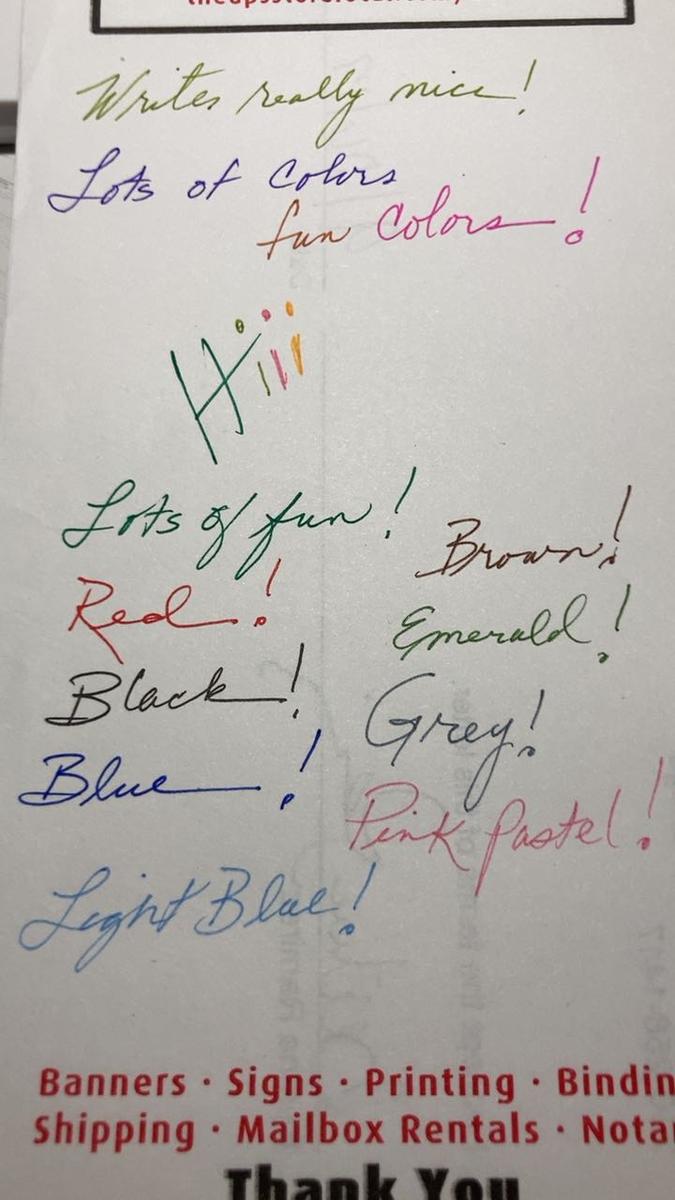 Writes really nice!
Lots of Colors
fun Colors!
Hiii
Lots of fun!
Brown!
Red!
Emerald!
Black!
Grey!
Blue!
Pink Pastel!
Light Blue!
Banners · Signs · Printing · Bindin
Shipping · Mailbox Rentals · Nota
Thank You